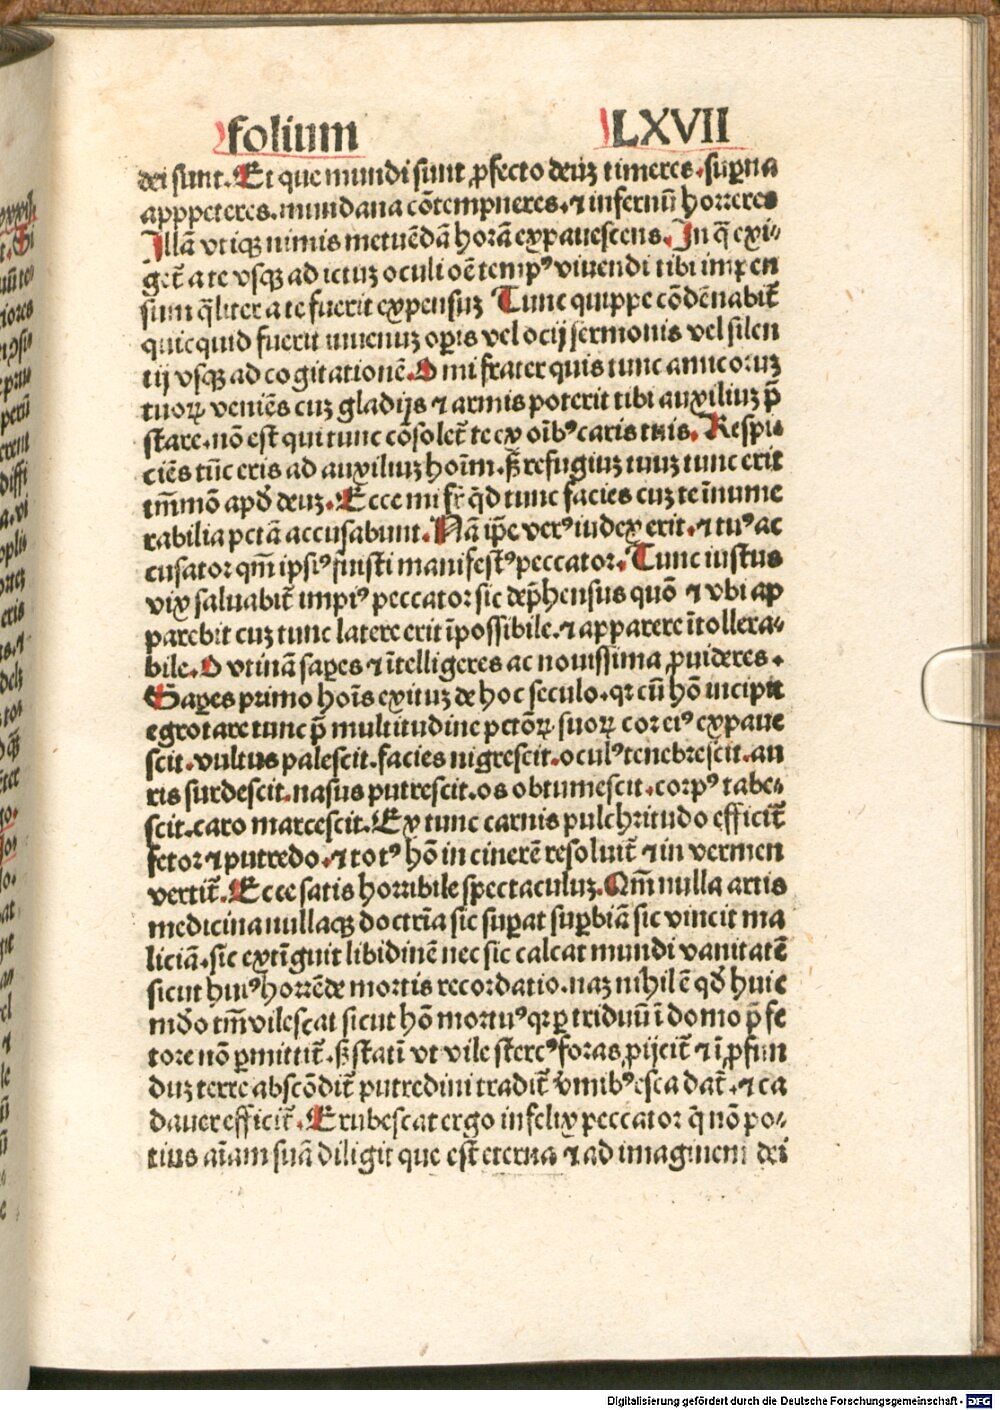 folium LXVII
dei sunt. Et que mundi sunt ꝓfecto deuʒ timeres. suꝑna
apppeteres. mundana cōtempneres. ⁊ infernū horreres
Illā vtiqꝫ nimis metuēdā horā expauescens. In q̄ exi⸗
get̄ a te vsqꝫ ad ictuʒ oculi oē tempꝰ viuendi tibi impen
sum q̄liter a te fuerit expensuʒ Tunc quippe cōdēnabit̄
quicquid fuerit inuenuʒ oꝑis vel ocij sermonis vel silen
tij vsqꝫ ad cogitationē. O mi frater quis tunc amicoruʒ
tuoꝝ veniēs cuʒ gladijs ⁊ armis poterit tibi auxiliuʒ p̄
stare. nō est qui tunc cōsolet̄ te ex oībꝰ caris tuis. Respi⸗
ciēs tūc eris ad auxiliuʒ hoīm. ꞩ refugiuʒ tuuʒ tunc erit
tm̄mō apđ deuʒ. Ecce mi fr̄ q̄d tunc facies cuʒ te īnume
rabilia pctā accusabunt. Nā ip̄e verꝰ iudex erit. ⁊ tuꝰ ac
cusator qm̄ ipsiꝰ fuisti manifestꝰ peccator. Tunc iustus
vix saluabit̄ impiꝰ peccator sic dep̄hensus quō ⁊ vbi ap
parebit cuʒ tunc latere erit īpossibile. ⁊ apparere ītollera⸗
bile. O vtinā saꝑes ⁊ ītelligeres ac nouissima ꝓuideres.
Saꝑes primo hoīs exituʒ de hoc seculo. qꝛ cū hō incipit
egrotare tunc p̄ multitudine pctōꝝ suoꝝ cor eiꝰ expaue
scit. vultus palescit. facies nigrescit. oculꝰ tenebrescit. au
ris surdescit. nasus putrescit. os obtumescit. corpꝰ tabe⸗
scit. caro marcescit. Ex tunc carnis pulchritudo efficit̄
fetor ⁊ putredo. ⁊ totꝰ hō in cinerē resoluit̄ ⁊ in vermen
vertit̄. Ecce satis horribile spectaculuʒ. Qm̄ nulla artis
medicina nullaqꝫ doctrīa sic suꝑat suꝑbiā sic vincit ma
liciā. sic extīguit libidinē nec sic calcat mundi vanitatē
sicut huiꝰ horrēde mortis recordatio. naʒ nihil ē qđ huic
mđo tm̄ vilescat sicut hō mortuꝰ qꝛ ꝑ triduū ī domo p̄ fe
tore nō ꝑmittit̄. ꞩ statī vt vile stercꝰ foras ꝓijcit̄ ⁊ ī ꝓfun
duʒ terre abscōdit̄ putredini tradit̄ v̄mibꝰ esca dat̄. ⁊ ca
dauer efficit̄. Erubescat ergo infelix peccator q̄ nō po⸗
tius aīam suā diligit que est eterna ⁊ ad imaginem dei
Digitalisierung gefördert durch die Deutsche Forschungsgemeinschaft - DFG